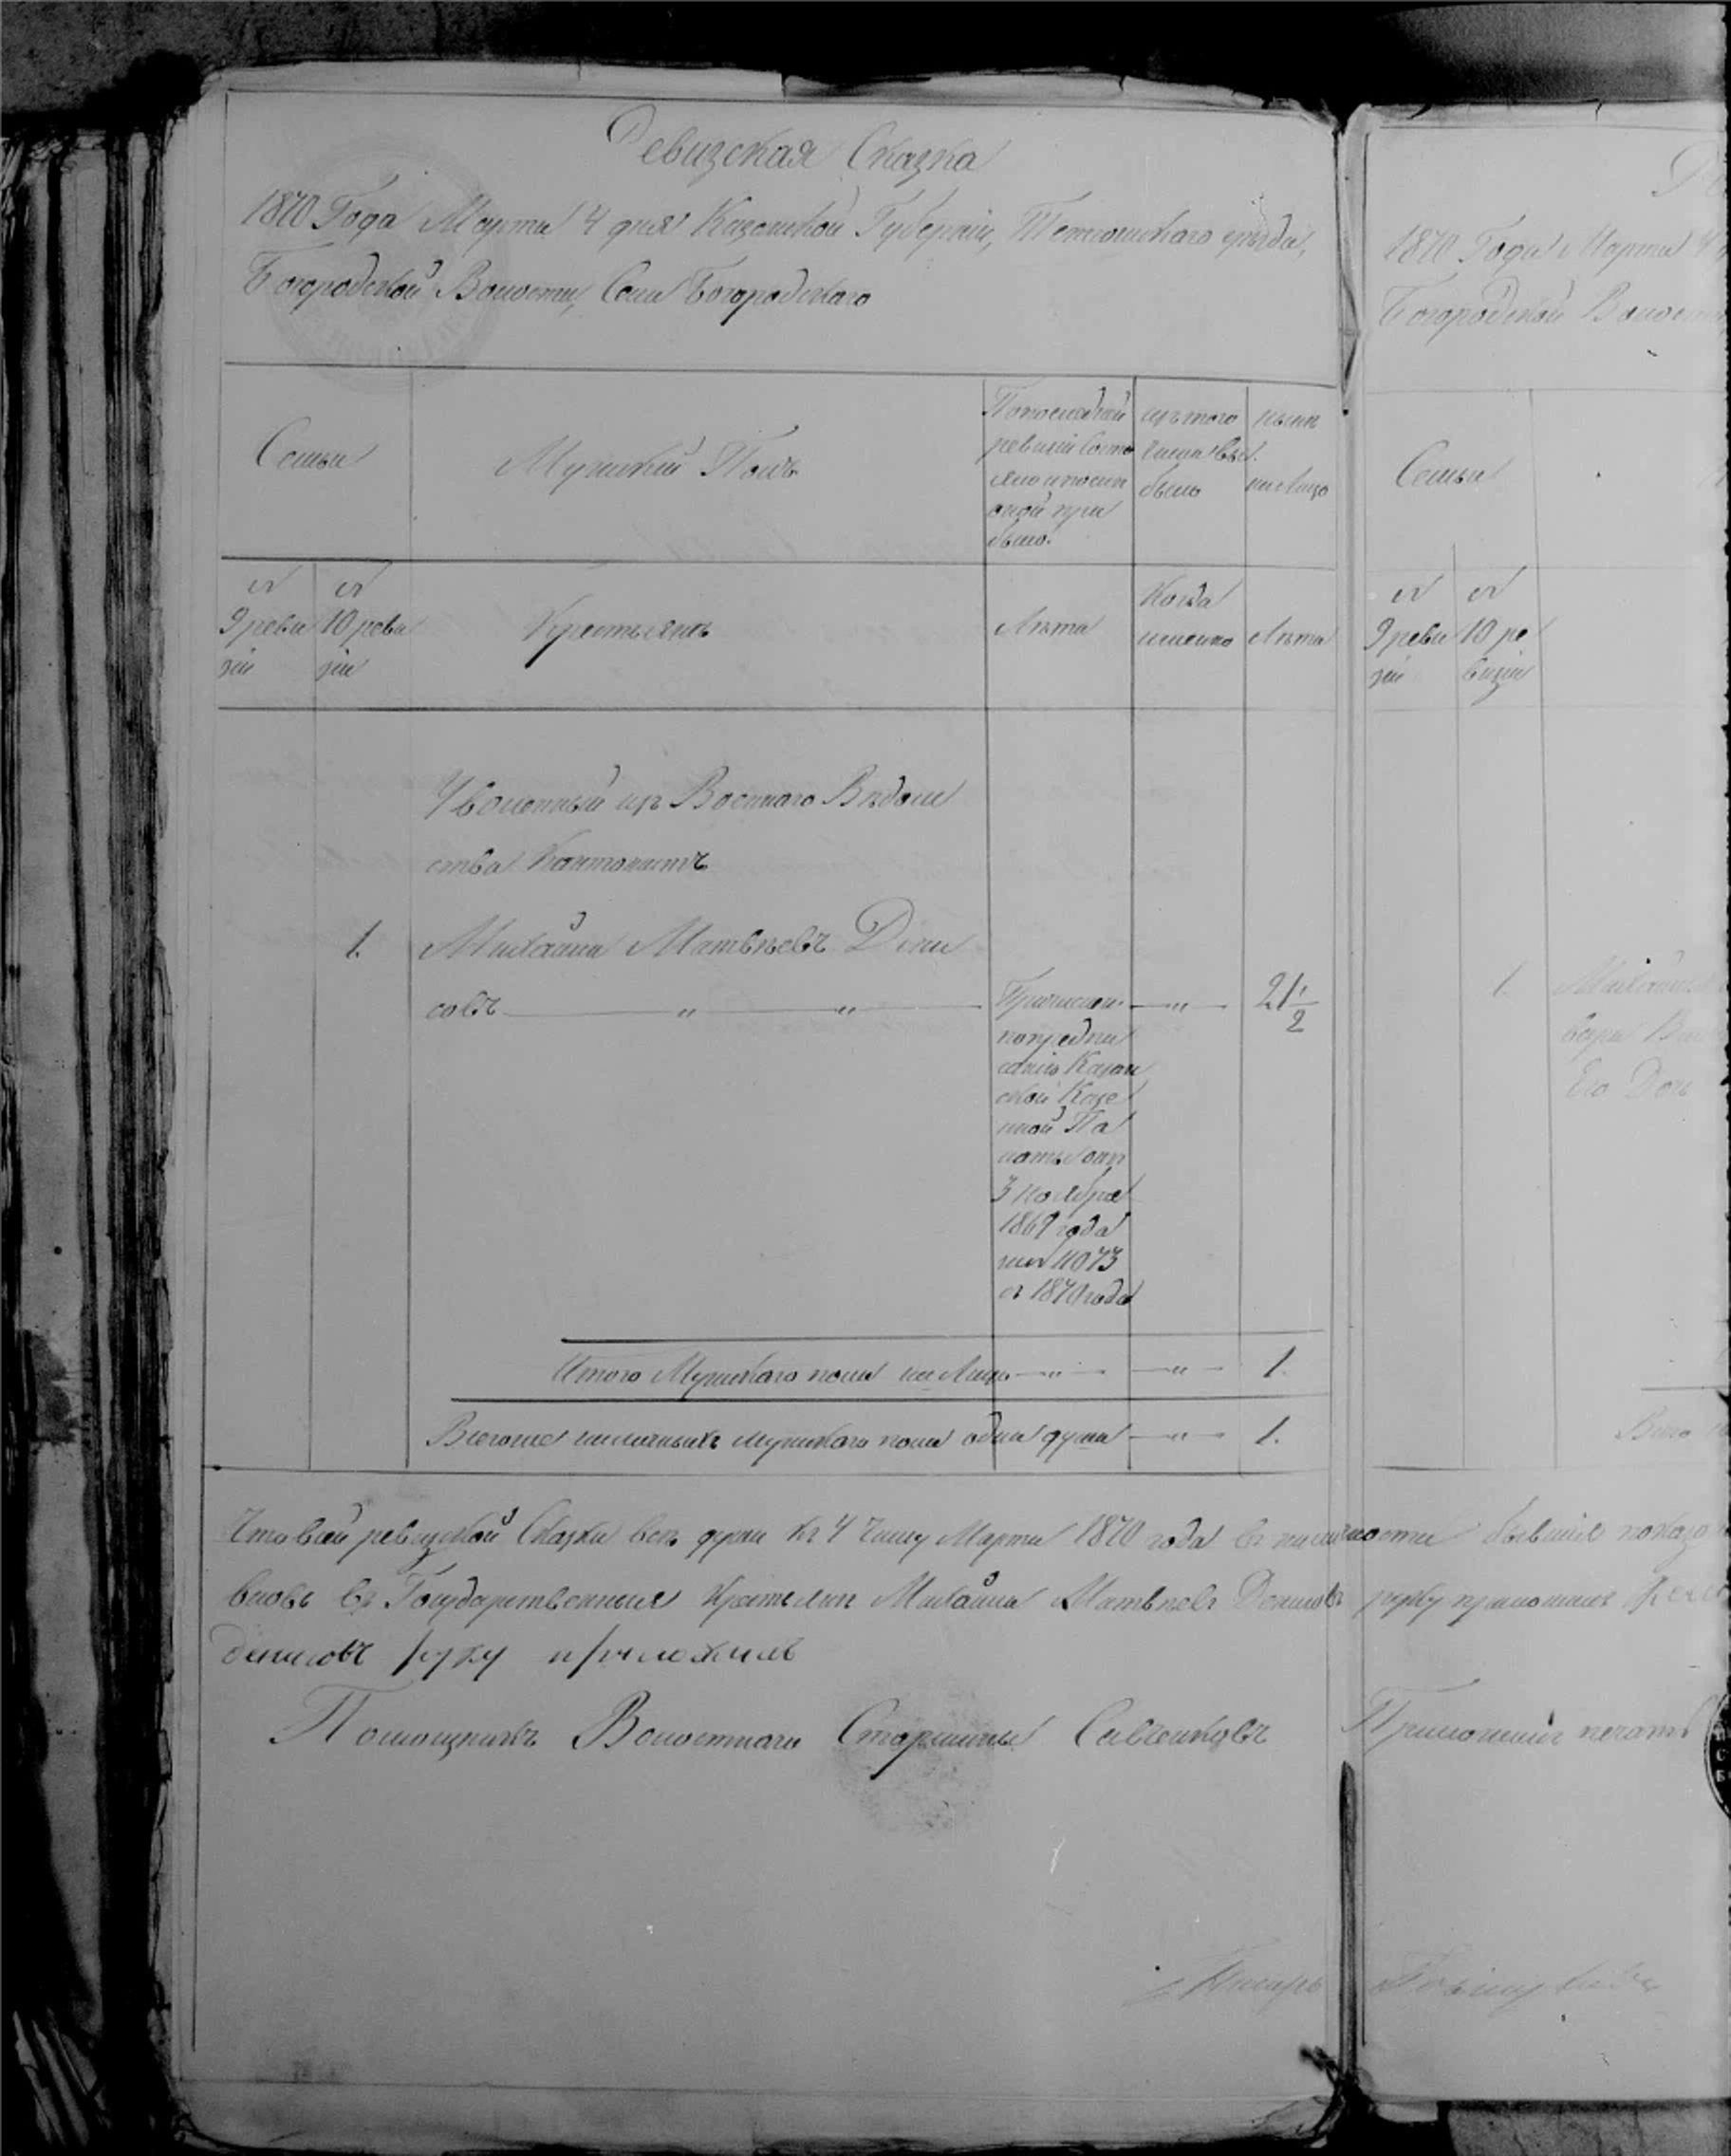 Ревизская Сказка
1870 Года Марта 4 дня Казанской Губерніи, Тетюшскаго уѣзда,
Богородской Волости, Села Богородскаго
Семьи
Мужескій Полъ
По последней
ревизіи состо
яло и после
оной при
было.
изъ того
числа вы
было
нынѣ
на лицо
№ 9 реви
зіи
№ 10 реви
зіи
Крестьянъ
Лѣта
Когда
именно
Лѣта
Уволенный изъ Военнаго Вѣдом
ства Кантонистъ
1. Михайла Матвѣевъ Дени
совъ — " — " — Причислен. — " — 21 1/2
по предпи
санію Казан
ской Казе
нной Па
латы отъ
3 Ноября
1869 года
за № 11073
съ 1870 года
Итого Мужескаго пола на Лицо — " — — " — 1.
Всего же наличныхъ мужескаго пола одна душа — " — 1.
Что в сей ревизской Сказки всѣ души къ 4 числу Марта 1870 года въ наличности бывшіе показа
вновь въ Государственныя Крестьяне Михайла Матвѣевъ Денисовъ руку приложилъ
Денисовъ руку приложилъ
Помощникъ Волостнаго Старшины Савченковъ Приложилъ печать
Писарь
1870 Года Марта 4
Богородской Волости
Семьи
№ 9 реви
зіи
№ 10 ре
визіи
1. Михайлы
Его Доч
Всего